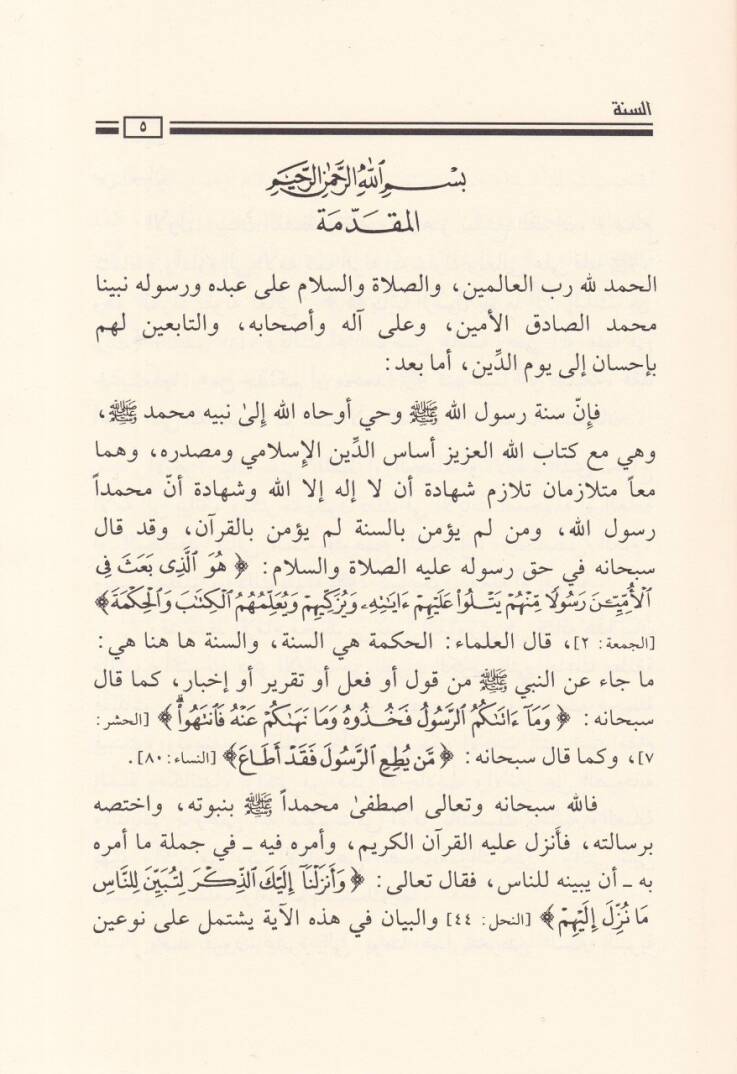 السنة
٥
بسم الله الرحمن الرحيم
المقدمة
الحمد لله رب العالمين، والصلاة والسلام على عبده ورسوله نبينا
محمد الصادق الأمين، وعلى آله وأصحابه، والتابعين لهم
بإحسان إلى يوم الدِّين، أما بعد:
فإنّ سنة رسول الله ﷺ وحي أوحاه الله إلىٰ نبيه محمد ﷺ،
وهي مع كتاب الله العزيز أساس الدِّين الإسلامي ومصدره، وهما
معاً متلازمان تلازم شهادة أن لا إله إلا الله وشهادة أنّ محمداً
رسول الله، ومن لم يؤمن بالسنة لم يؤمن بالقرآن، وقد قال
سبحانه في حق رسوله عليه الصلاة والسلام: ﴿هُوَ ٱلَّذِى بَعَثَ فِى
ٱلْأُمِّيِّـۧنَ رَسُولًا مِّنْهُمْ يَتْلُوا۟ عَلَيْهِمْ ءَايَـٰتِهِۦ وَيُزَكِّيهِمْ وَيُعَلِّمُهُمُ ٱلْكِتَـٰبَ وَٱلْحِكْمَةَ﴾
[الجمعة: ٢]، قال العلماء: الحكمة هي السنة، والسنة ها هنا هي:
ما جاء عن النبي ﷺ من قول أو فعل أو تقرير أو إخبار، كما قال
سبحانه: ﴿وَمَآ ءَاتَىٰكُمُ ٱلرَّسُولُ فَخُذُوهُ وَمَا نَهَىٰكُمْ عَنْهُ فَٱنتَهُوا۟ۚ﴾ [الحشر:
٧]، وكما قال سبحانه: ﴿مَّن يُطِعِ ٱلرَّسُولَ فَقَدْ أَطَاعَ﴾ [النساء: ٨٠].
فالله سبحانه وتعالى اصطفىٰ محمداً ﷺ بنبوته، واختصه
برسالته، فأنزل عليه القرآن الكريم، وأمره فيه ـ في جملة ما أمره
به ـ أن يبينه للناس، فقال تعالى: ﴿وَأَنزَلْنَآ إِلَيْكَ ٱلذِّكْرَ لِتُبَيِّنَ لِلنَّاسِ
مَا نُزِّلَ إِلَيْهِمْ﴾ [النحل: ٤٤] والبيان في هذه الآية يشتمل على نوعين